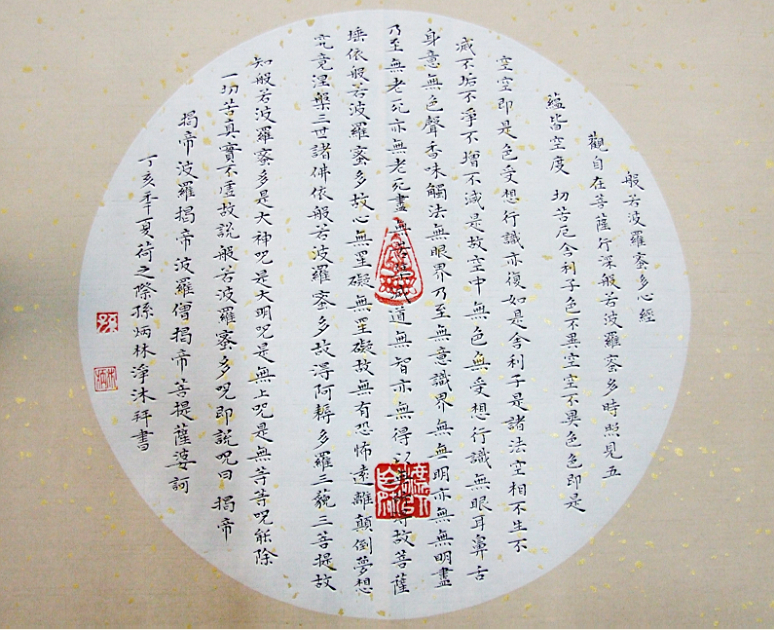 般若波羅蜜多心經
觀自在菩薩行深般若波羅蜜多時照見五
蘊皆空度一切苦厄舍利子色不異空空不異色色即是
空空即是色受想行識亦復如是舍利子是諸法空相不生不
滅不垢不淨不增不減是故空中無色無受想行識無眼耳鼻舌
身意無色聲香味觸法無眼界乃至無意識界無無明亦無無明盡
乃至無老死亦無老死盡無苦集滅道無智亦無得以無所得故菩薩
埵依般若波羅蜜多故心無罣礙無罣礙故無有恐怖遠離顛倒夢想
究竟涅槃三世諸佛依般若波羅蜜多故得阿耨多羅三藐三菩提故
知般若波羅蜜多是大神呪是大明呪是無上呪是無等等呪能除
一切苦真實不虛故說般若波羅蜜多呪即說呪曰 揭帝
揭帝 波羅揭帝 波羅僧揭帝 菩提薩婆訶
丁亥年夏荷之際孫炳林淨沐拜書